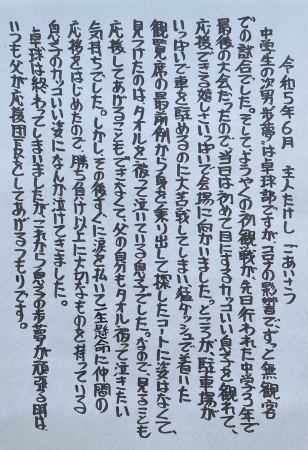 令和5年6月　主人たけし　ごあいさつ
中学生の次男歩夢は卓球部ですが、コロナの影響でずっと無観客
での試合でした。そしてようやくの初観戦が、先日行われた中学3年で
最後の大会だったので、当日は初めて目にするカッコいい息子を観れて、
応援できる嬉しさいっぱいで会場に向かいました。ところが、駐車場が
いっぱいで車を駐めるのに大苦戦してしまい、猛ダッシュで着いた
観覧席の最前例から身を乗り出して探したコートに姿はなくて、
見つけたのは、タオルを被って泣いている息子でした。なので、見ることも
応援してあげることもできなくて、父の自分もタオル被って泣きたい
気持ちでした。しかし、その後すぐに涙を払いて全懸命に仲間の
応援をはじめたので、勝ち負け以上に大切なものを持っている
息子のカッコいい姿になんか泣けてきました。
卓球は終わってしまいましたが、これから息子の歩夢が頑張る時は
いつも父が応援団長をしてあげるつもりです。